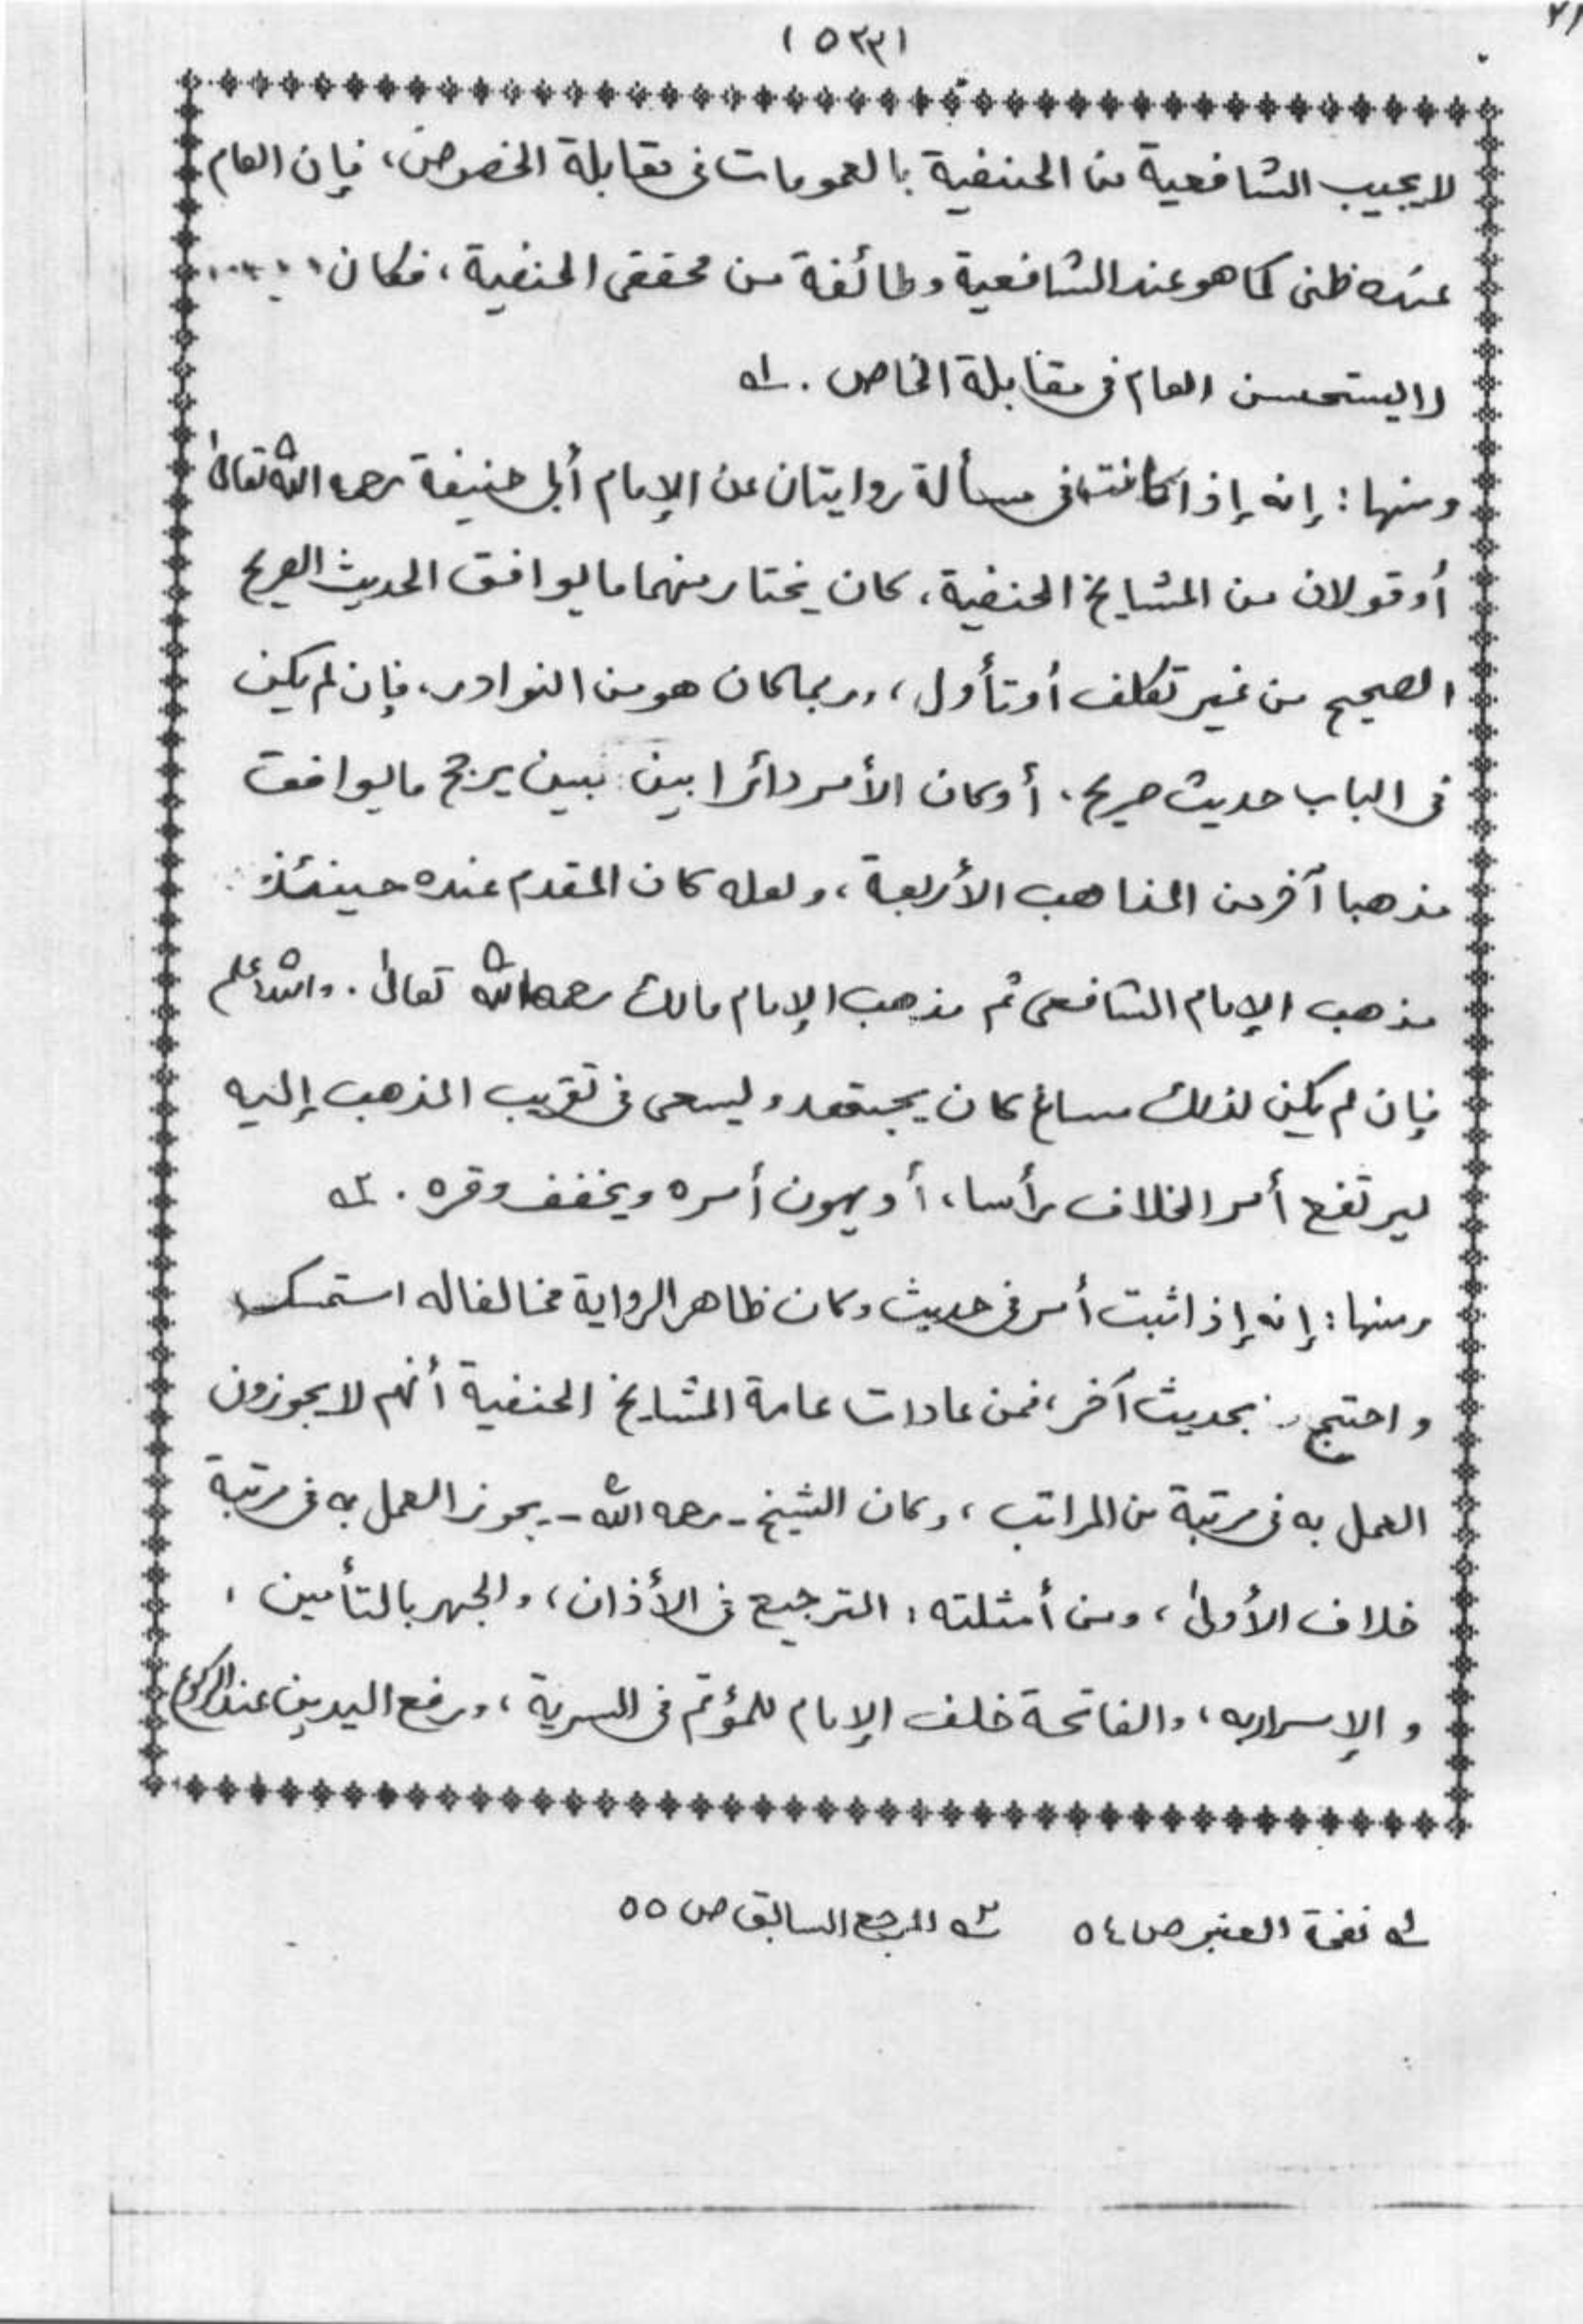 (٥٣٣)
لا يجيب الشافعية من الحنفية بالعمومات فى مقابلة الخصوص، فإن العام
عنده ظنى كما هو عند الشافعية وطائفة من محققى الحنفية، فكان
لا يستحسن العام فى مقابلة الخاص . ١ـه
ومنها : إنه إذا كانت فى مسألة روايتان عن الإمام أبى حنيفة رحمه الله تعالى
أو قولان من المشايخ الحنفية، كان يختار منهما ما يوافق الحديث الصريح
الصحيح من غير تكلف أو تأول، وربما كان هو من النوادر، فإن لم يكن
فى الباب حديث صريح، أو كان الأمر دائرا بين بين يرجح ما يوافق
مذهبا آخر من المذاهب الأربعة، ولعله كان المقدم عنده حينئذ
مذهب الإمام الشافعى ثم مذهب الإمام مالك رحمه الله تعالى . والله أعلم
فإن لم يكن لذلك مساغ كان يجتهد ويسعى فى تقريب المذهب إليه
ليرتفع أمر الخلاف رأسا، أو يهون أمره ويخفف وقره . ٢ـه
ومنها : إنه إذا ثبت أمر فى حديث وكان ظاهر الرواية مخالفا له استمسك
واحتج بحديث آخر، فمن عادات عامة المشايخ الحنفية أنهم لا يجوزون
العمل به فى مرتبة من المراتب، وكان الشيخ - رحمه الله - يجوز العمل به فى مرتبة
خلاف الأولى، ومن أمثلته : الترجيع فى الأذان، والجهر بالتأمين،
والإسرار به، والفاتحة خلف الإمام للمؤتم فى السرية، ورفع اليدين عند الركوع
١ـه نفحة العنبر ص ٥٤ ٢ـه المرجع السابق ص ٥٥